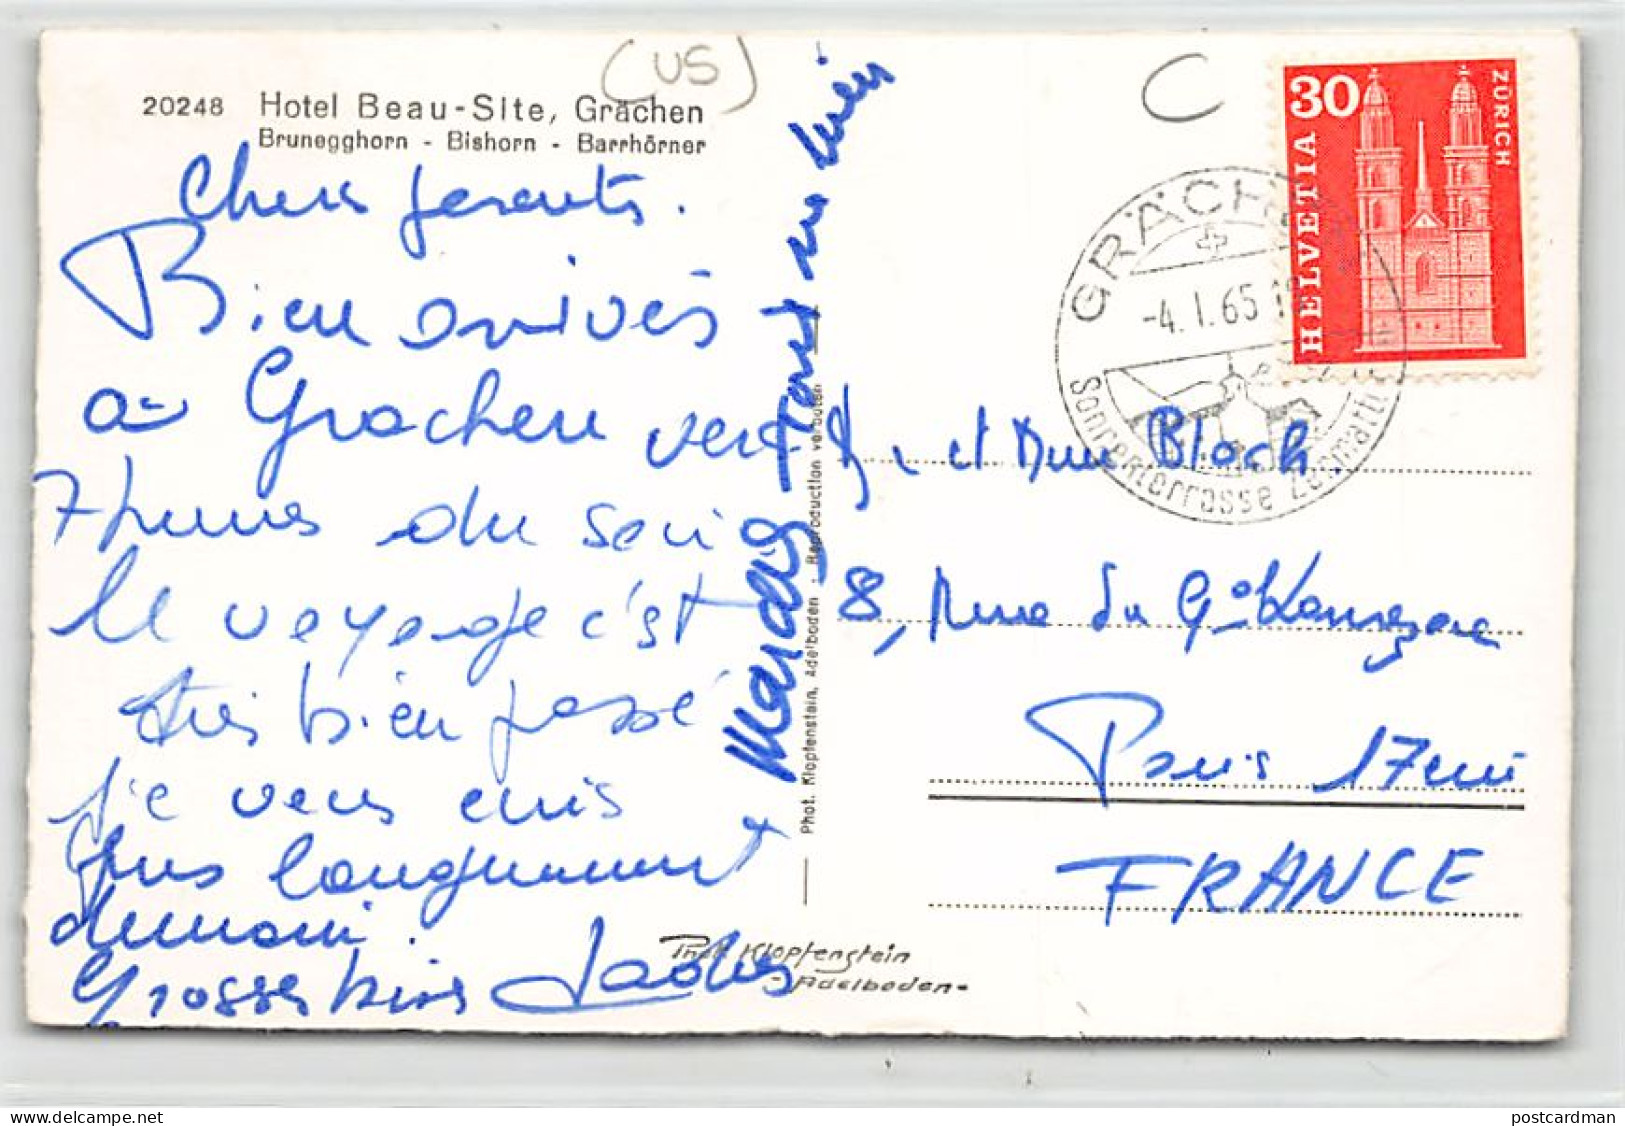 (US)
C
20248 Hotel Beau-Site, Grächen
Brunegghorn - Bishorn - Barrhörner
30
HELVETIA
ZÜRICH
GRÄCH
-4. I. 65
Sonnenterrasse Zermatt
Chers parents.
Bien arrivés
à Grachen vers
7 heures du soir
le voyage c'est
très bien passé
je vous écris
plus longuement
demain.
Grosses bises Jacques
Mardig
Phot. Klopfenstein, Adelboden · Reproduction verboten
et Mme Bloch
8, Rue du Gal
Paris 17eme
FRANCE
Phot Klopfenstein
- Adelboden -
delcampe.net
postcardman